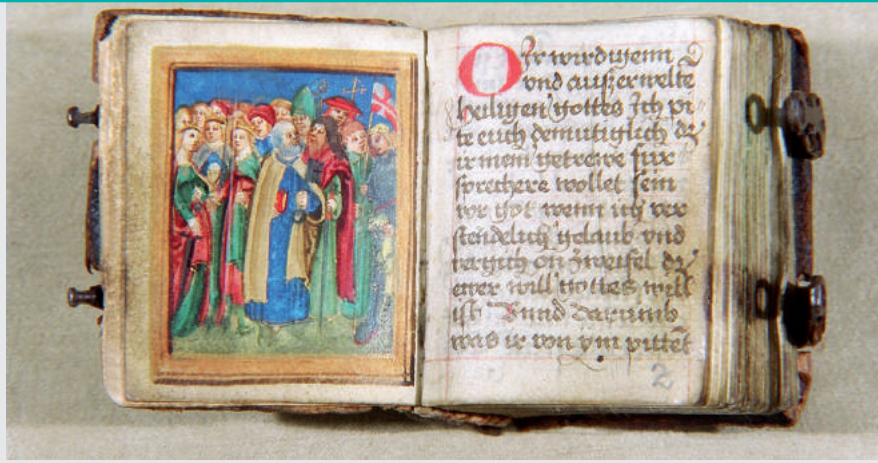 O Ir wirdigenn
vnd außerwelte
heiligen gottes Ich pi
te euch demutiglich dz
ir mein getrewe fur
sprechere wollet sein
vor got wenn ich vor
stendelich gelaub vnd
vergich on zweifel dz
ewer will gottes will
ist Vnnd darumb
was ir von ym pittet
2